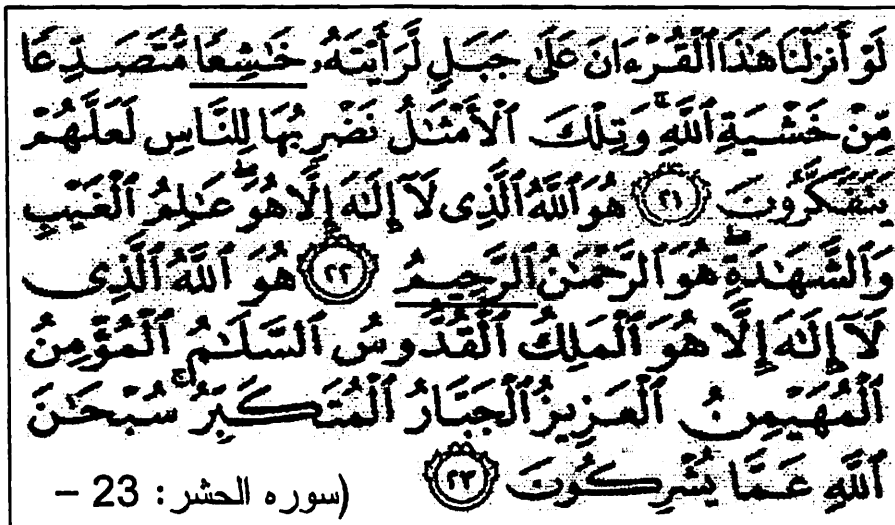 لَوْ أَنزَلْنَا هَـٰذَا ٱلْقُرْءَانَ عَلَىٰ جَبَلٍ لَّرَأَيْتَهُۥ خَـٰشِعًا مُّتَصَدِّعًا
مِّنْ خَشْيَةِ ٱللَّهِ ۚ وَتِلْكَ ٱلْأَمْثَـٰلُ نَضْرِبُهَا لِلنَّاسِ لَعَلَّهُمْ
يَتَفَكَّرُونَ ٢١ هُوَ ٱللَّهُ ٱلَّذِى لَآ إِلَـٰهَ إِلَّا هُوَ ۖ عَـٰلِمُ ٱلْغَيْبِ
وَٱلشَّهَـٰدَةِ ۖ هُوَ ٱلرَّحْمَـٰنُ ٱلرَّحِيمُ ٢٢ هُوَ ٱللَّهُ ٱلَّذِى
لَآ إِلَـٰهَ إِلَّا هُوَ ٱلْمَلِكُ ٱلْقُدُّوسُ ٱلسَّلَـٰمُ ٱلْمُؤْمِنُ
ٱلْمُهَيْمِنُ ٱلْعَزِيزُ ٱلْجَبَّارُ ٱلْمُتَكَبِّرُ ۚ سُبْحَـٰنَ
ٱللَّهِ عَمَّا يُشْرِكُونَ ٢٣ (سوره الحشر: 23 –